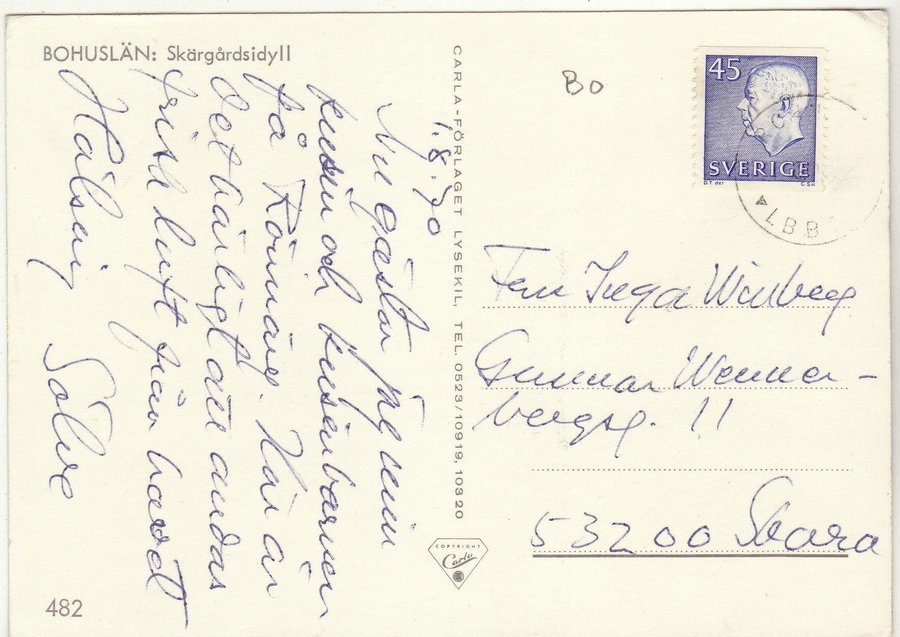 BOHUSLÄN: Skärgårdsidyll
1.8.70
Nu gästar jag min
kusin och kusinbarnen
på Rönnäng. Här är
det härligt att andas
frisk luft från havet
Hälsning Sölve
482
CARLA-FÖRLAGET LYSEKIL, TEL. 0523/10919, 10320
COPYRIGHT
Carla
BO
45
SVERIGE
D.T. del
C.S. sc
Fru Inga Winberg
Gunnar Wenner-
bergsg. 11
53200 Skara